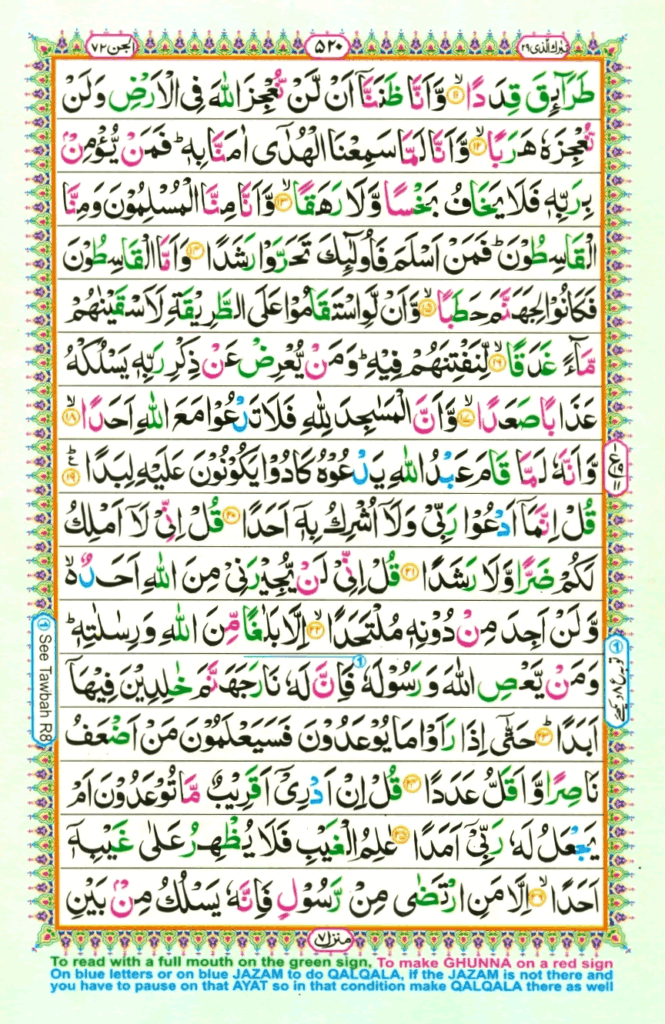 تبٰرك الذی ٢٩
٥٢٠
الجن ٧٢
طَرَآئِقَ قِدَدًا ۙ﴿۱۱﴾ وَّاَنَّا ظَنَنَّاۤ اَنْ لَّنْ نُّعْجِزَ اللّٰهَ فِی الْاَرْضِ وَلَنْ
نُّعْجِزَهٗ هَرَبًا ۙ﴿۱۲﴾ وَّاَنَّا لَمَّا سَمِعْنَا الْهُدٰۤی اٰمَنَّا بِهٖ ؕ فَمَنْ یُّؤْمِنْۢ
بِرَبِّهٖ فَلَا یَخَافُ بَخْسًا وَّلَا رَهَقًا ۙ﴿۱۳﴾ وَّاَنَّا مِنَّا الْمُسْلِمُوْنَ وَمِنَّا
الْقَاسِطُوْنَ ؕ فَمَنْ اَسْلَمَ فَاُولٰٓئِكَ تَحَرَّوْا رَشَدًا ﴿۱۴﴾ وَاَمَّا الْقَاسِطُوْنَ
فَكَانُوْا لِجَهَنَّمَ حَطَبًا ۙ﴿۱۵﴾ وَّاَنْ لَّوِ اسْتَقَامُوْا عَلَی الطَّرِیْقَةِ لَاَسْقَیْنٰهُمْ
مَّآءً غَدَقًا ۙ﴿۱۶﴾ لِّنَفْتِنَهُمْ فِیْهِ ؕ وَمَنْ یُّعْرِضْ عَنْ ذِكْرِ رَبِّهٖ یَسْلُكْهُ
عَذَابًا صَعَدًا ۙ﴿۱۷﴾ وَّاَنَّ الْمَسٰجِدَ لِلّٰهِ فَلَا تَدْعُوْا مَعَ اللّٰهِ اَحَدًا ۙ﴿۱۸﴾
وَّاَنَّهٗ لَمَّا قَامَ عَبْدُ اللّٰهِ یَدْعُوْهُ كَادُوْا یَكُوْنُوْنَ عَلَیْهِ لِبَدًا ؕ﴿۱۹﴾ ع
قُلْ اِنَّمَاۤ اَدْعُوْا رَبِّیْ وَلَاۤ اُشْرِكُ بِهٖۤ اَحَدًا ﴿۲۰﴾ قُلْ اِنِّیْ لَاۤ اَمْلِكُ
لَكُمْ ضَرًّا وَّلَا رَشَدًا ﴿۲۱﴾ قُلْ اِنِّیْ لَنْ یُّجِیْرَنِیْ مِنَ اللّٰهِ اَحَدٌ ۙ۬
وَّلَنْ اَجِدَ مِنْ دُوْنِهٖ مُلْتَحَدًا ۙ﴿۲۲﴾ اِلَّا بَلٰغًا مِّنَ اللّٰهِ وَرِسٰلٰتِهٖ ؕ
وَمَنْ یَّعْصِ اللّٰهَ وَرَسُوْلَهٗ فَاِنَّ لَهٗ نَارَ جَهَنَّمَ خٰلِدِیْنَ فِیْهَاۤ
اَبَدًا ؕ﴿۲۳﴾ حَتّٰۤی اِذَا رَاَوْا مَا یُوْعَدُوْنَ فَسَیَعْلَمُوْنَ مَنْ اَضْعَفُ
نَاصِرًا وَّاَقَلُّ عَدَدًا ﴿۲۴﴾ قُلْ اِنْ اَدْرِیْۤ اَقَرِیْبٌ مَّا تُوْعَدُوْنَ اَمْ
یَجْعَلُ لَهٗ رَبِّیْۤ اَمَدًا ﴿۲۵﴾ عٰلِمُ الْغَیْبِ فَلَا یُظْهِرُ عَلٰی غَیْبِهٖۤ
اَحَدًا ۙ﴿۲۶﴾ اِلَّا مَنِ ارْتَضٰی مِنْ رَّسُوْلٍ فَاِنَّهٗ یَسْلُكُ مِنْۢ بَیْنِ
منزل ٧
See Tawbah R8
To read with a full mouth on the green sign, To make GHUNNA on a red sign
On blue letters or on blue JAZAM to do QALQALA, if the JAZAM is not there and
you have to pause on that AYAT so in that condition make QALQALA there as well